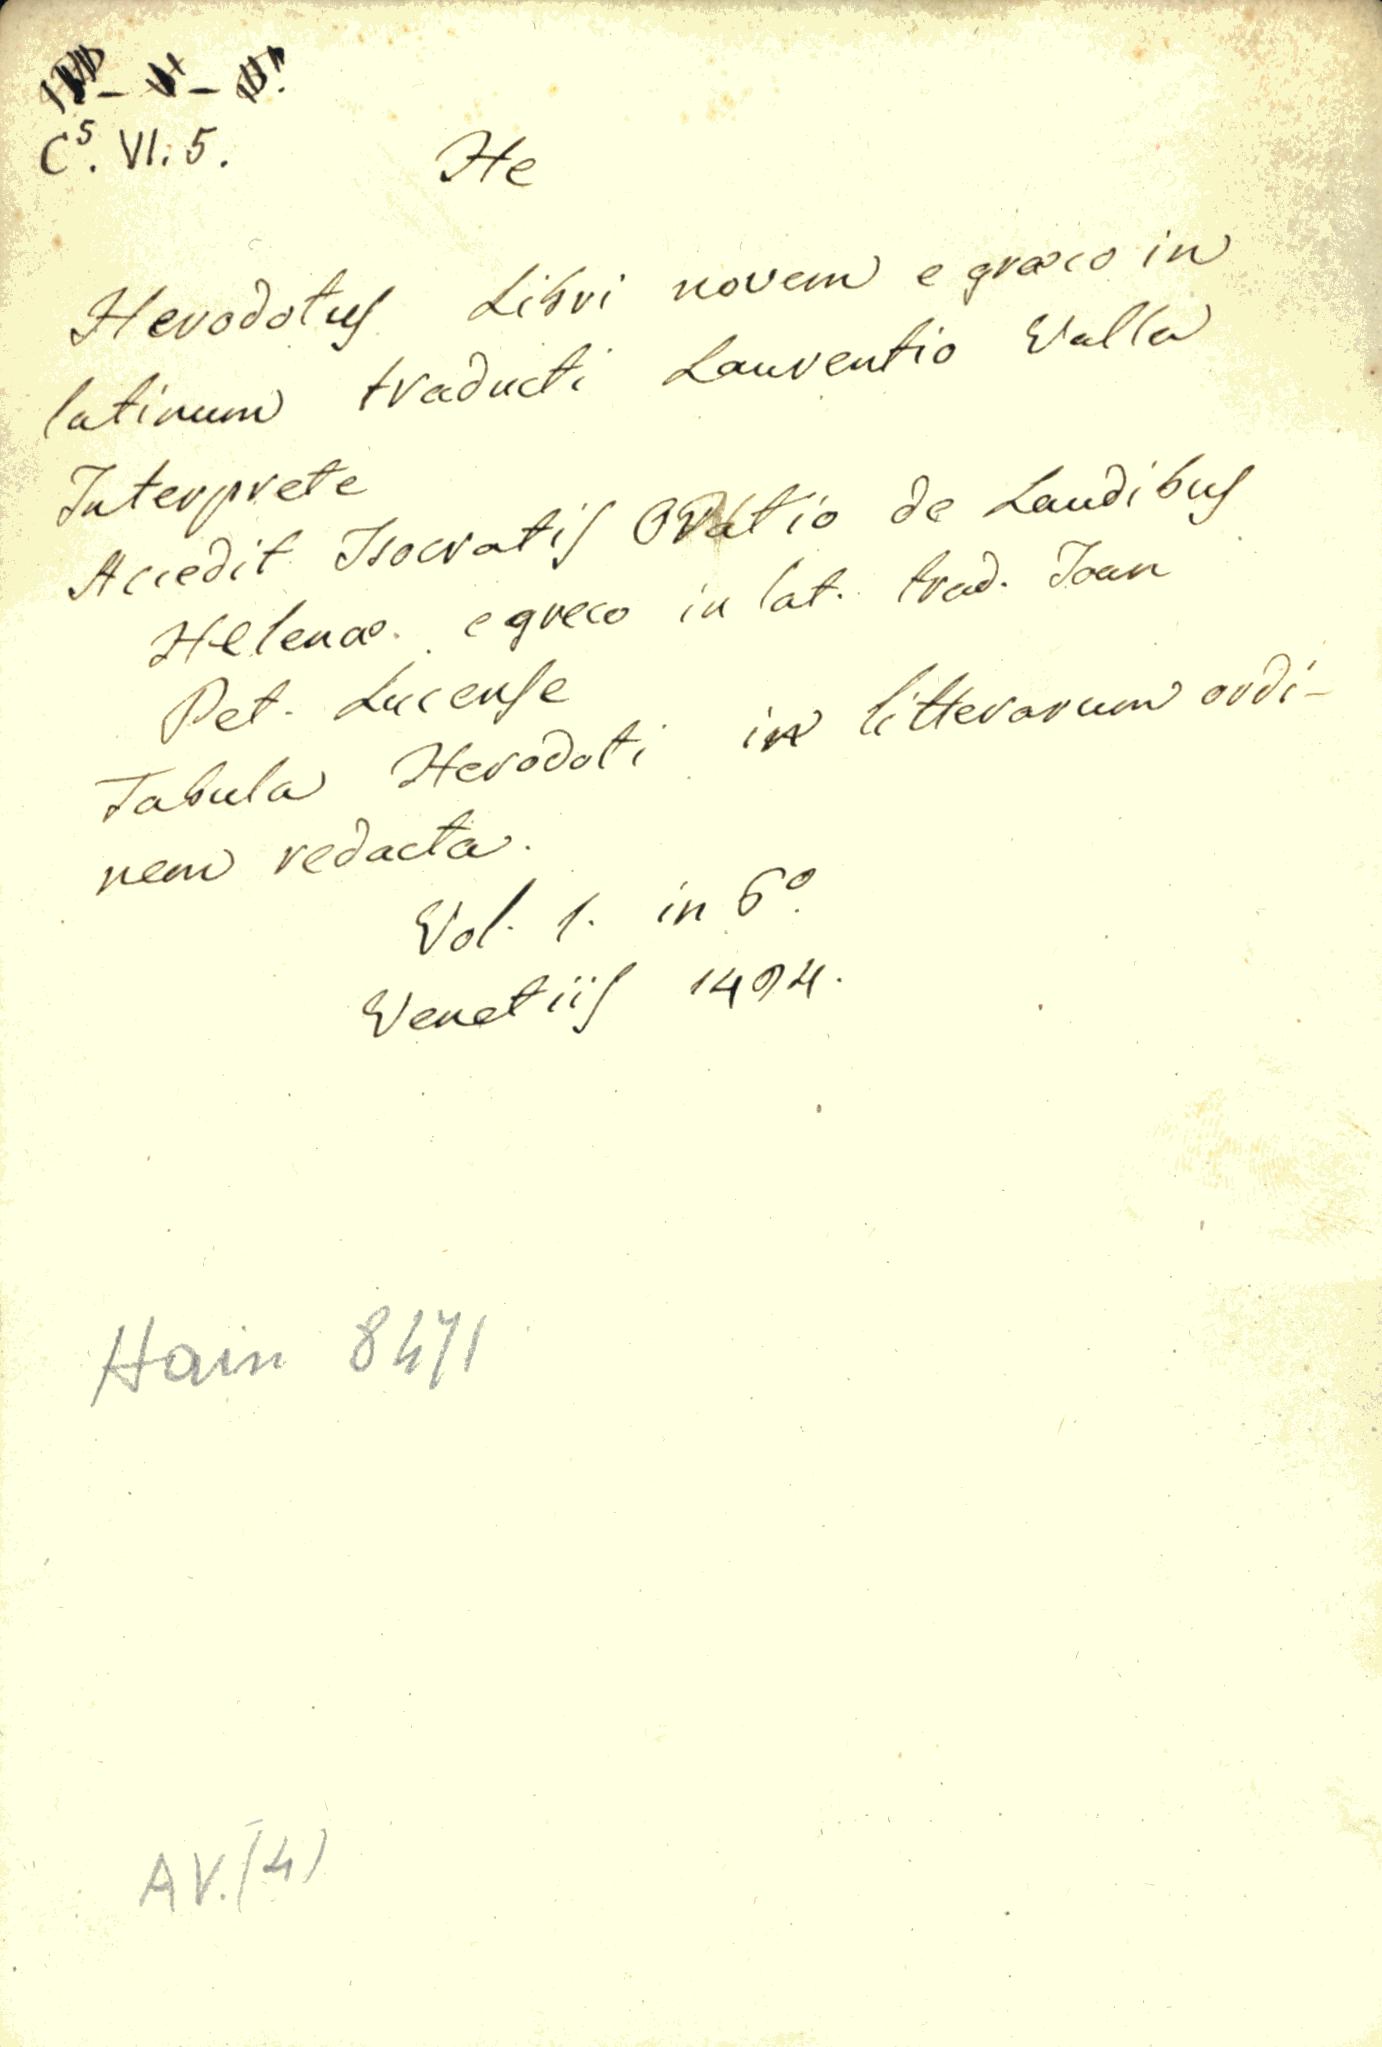 C⁵. VI. 5.
He
Herodotus Libri novem e græco in
latinum traducti Laurentio Valla
Interprete
Accedit Isocratis Oratio de Laudibus
Helenæ. e greco in lat. trad. Joan
Pet. Lucense
Tabula Herodoti in litterarum ordi-
nem redacta.
Vol. 1. in 6º.
Venetiis 1494.
Hain 8471
AV. (4)